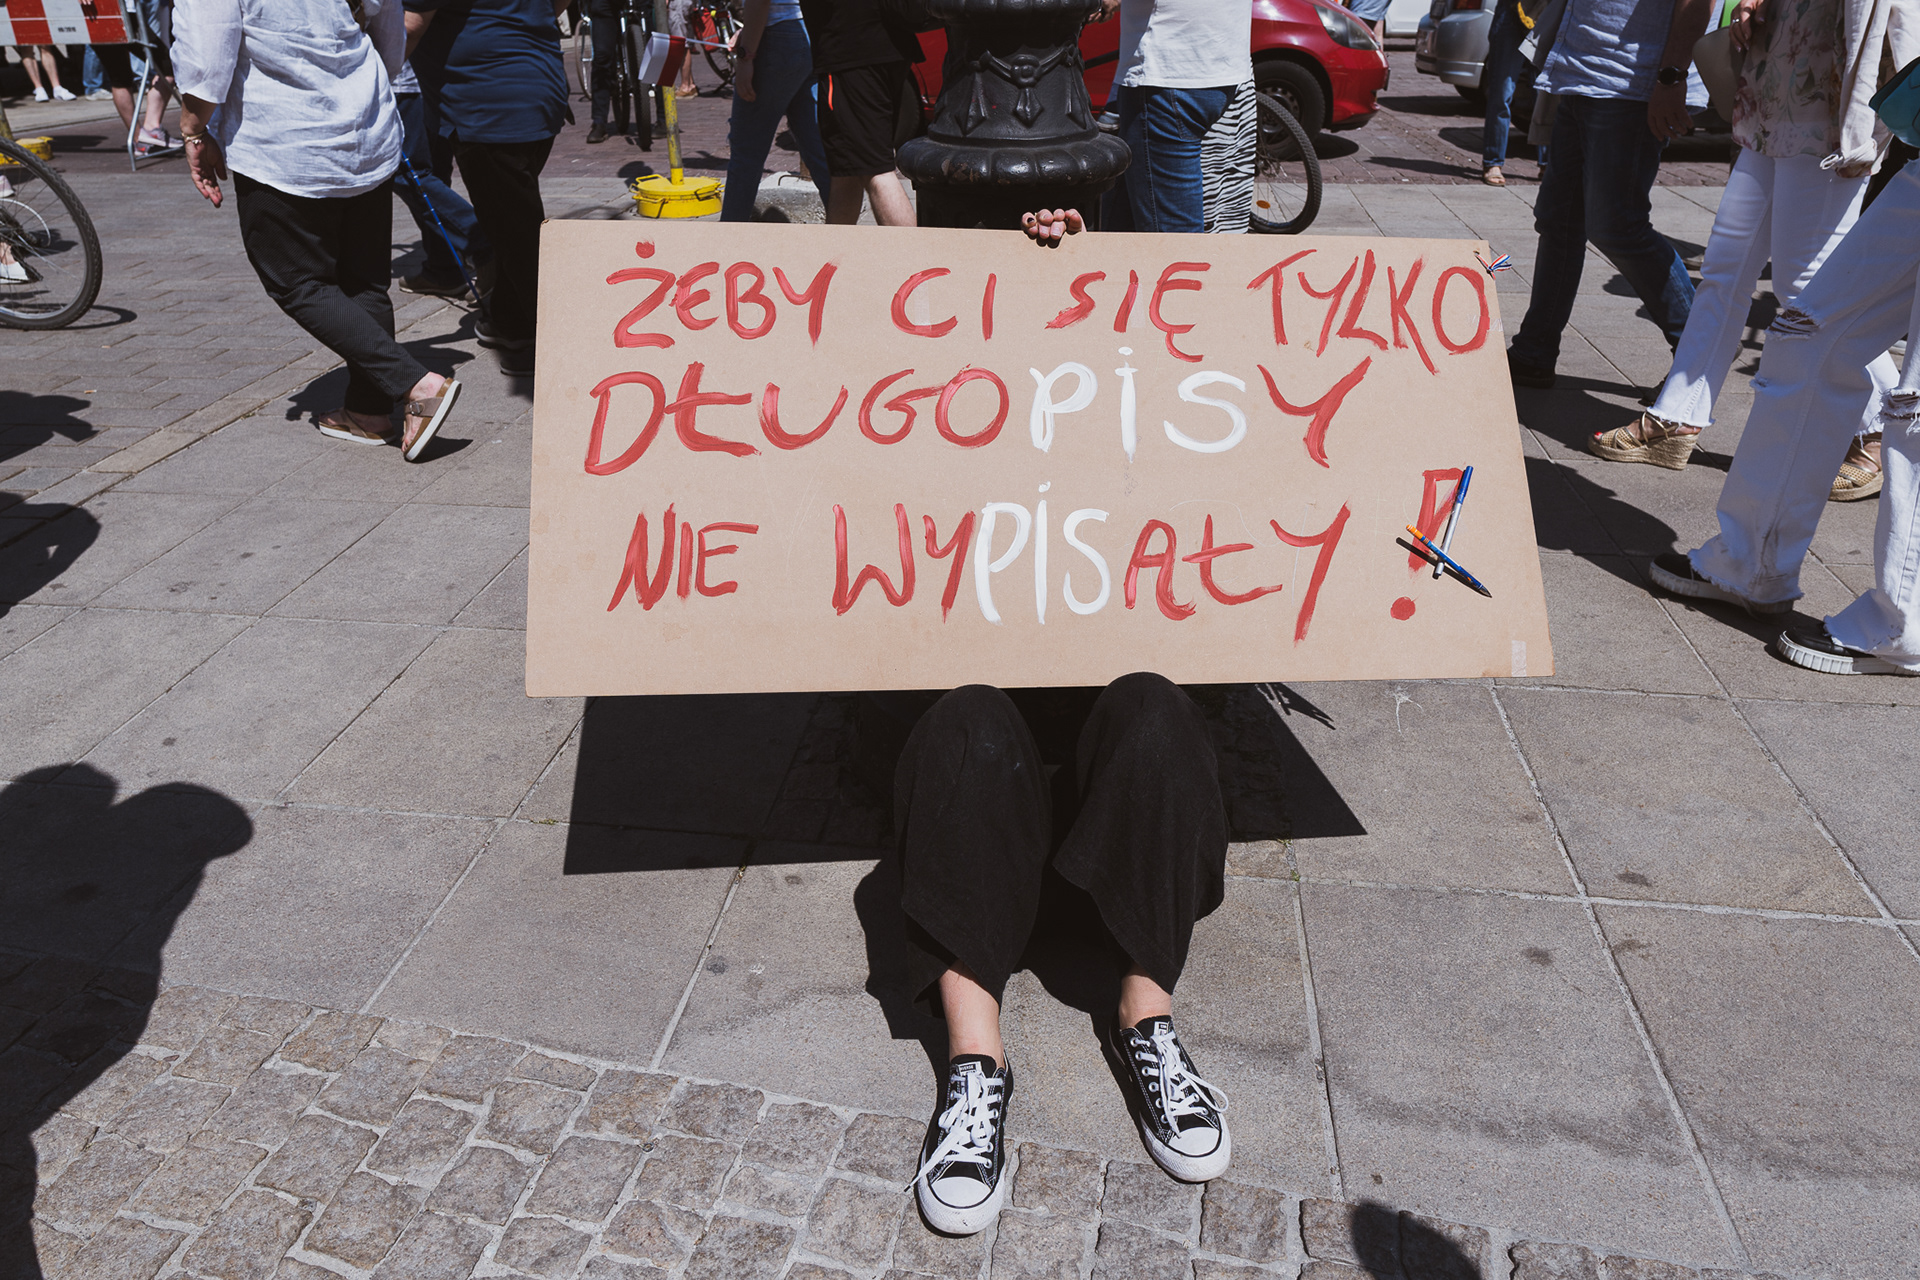 ŻEBY CI SIĘ TYLKO
DŁUGOPiSY
NIE WYPiSAŁY!